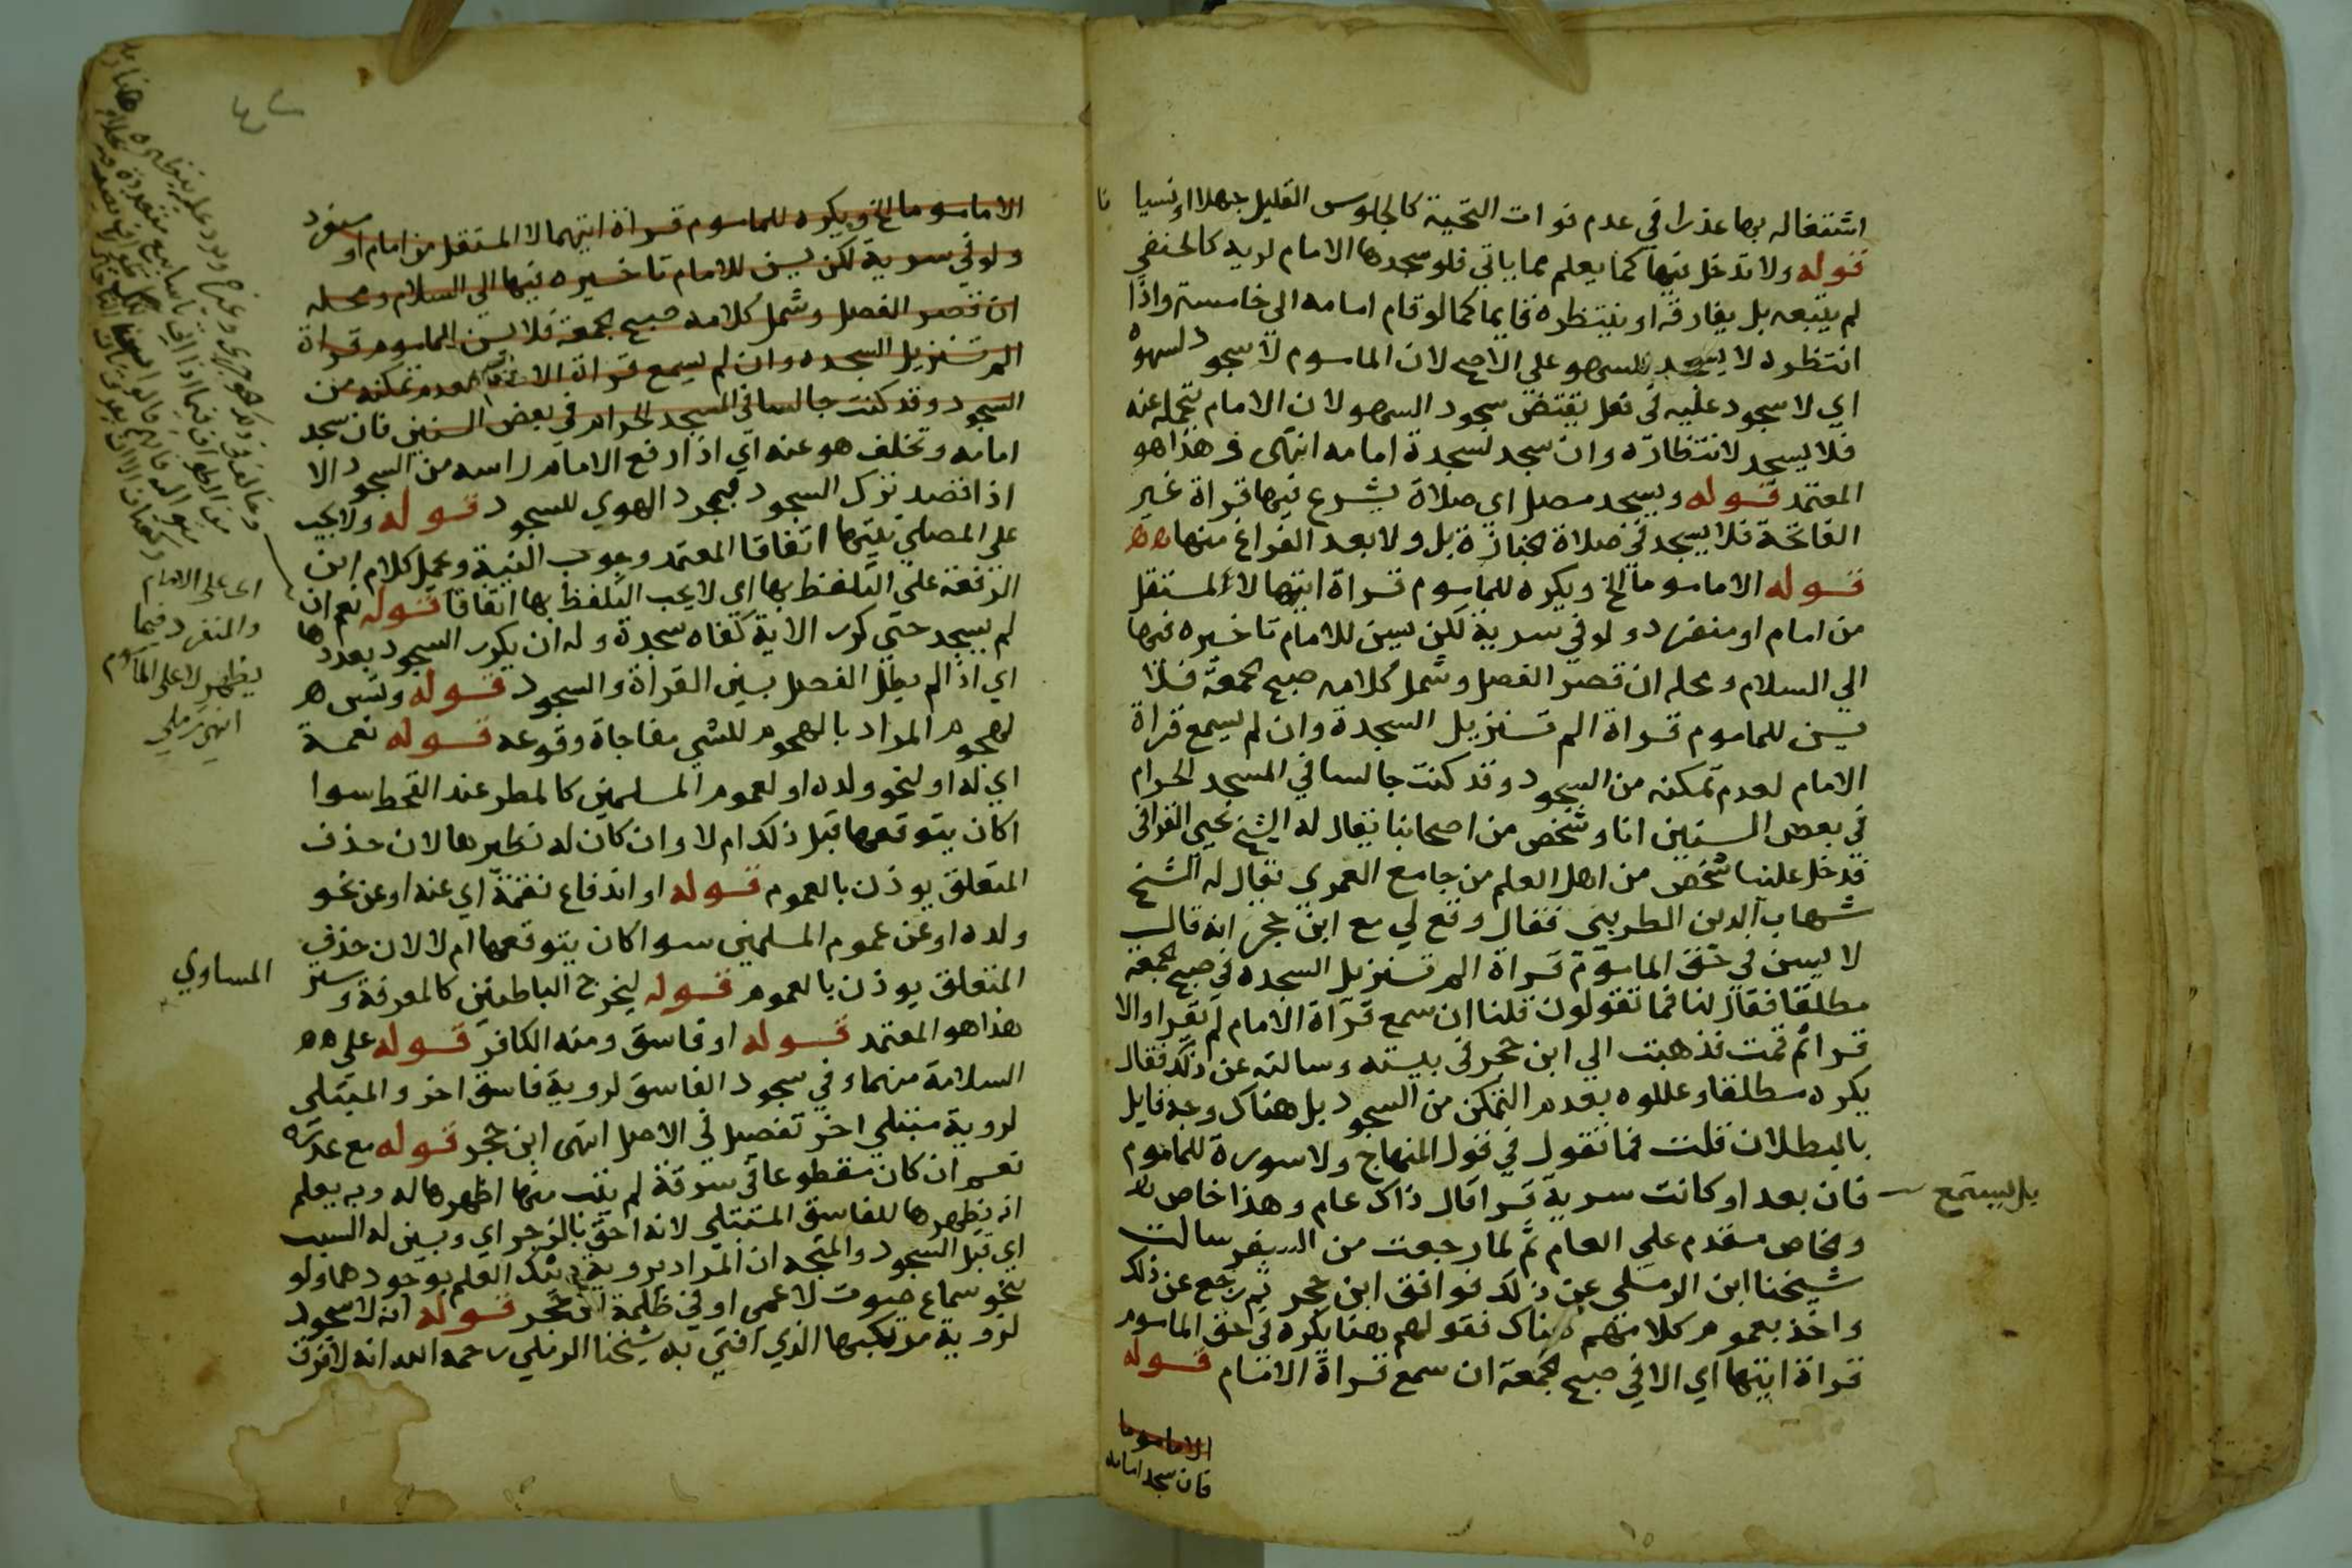 اشتغاله بها عذرا في عدم فوات التحية كالجلوس القليل جهلا او نسيا نا
قوله ولا تدخل فيها كما يعلم مما ياتي فلو سجدها الامام لريه كالحنفي
لم يتبعه بل يفارقه او ينتظره قايما كما لو قام امامه الي خامسة واذا
انتظره لا يسجد للسهو علي الاصح لان الماموم لا سجود لسهوه
اي لا سجود عليه في فعل يقتضي سجود السهو لان الامام يتحمله عنه
فلا يسجد لانتظاره وان سجد لسجدة امامه انتهى وهذا هو
المعتمد قوله ويسجد مصل اي صلاة يشرع فيها قراة غير
الفاتحة فلا يسجد في صلاة الجنازة بل ولا بعد الفراغ منها هه
قوله الا ماموما الخ ويكره للماموم قراة ايتها لا المستقل
من امام او منفرد ولو في سرية لكن يسن للامام تاخيره فيها
الي السلام ومحله ان قصر الفصل وشمل كلامه صبح الجمعة فلا
يسن للماموم قراة الم تنزيل السجدة وان لم يسمع قراة
الامام لعدم تمكنه من السجود وقد كنت جالسا في المسجد الحرام
في بعض السنين انا وشخص من اصحابنا يقال له الشيخ يحيي القرافي
قدخل علينا شخص من اهل العلم من جامع العمري يقال له الشيخ
شهاب الدين الطريني فقال وقع لي مع ابن حجر انه قال
لا يسن في حق الماموم قراة الم تنزيل السجده في صبح الجمعة
مطلقا فقال لنا فما تقولون قلنا ان سمع قراة الامام لم يقرا والا
قرا ثم قمت فذهبت الي ابن حجر في بيته وسالته عن ذلك فقال
يكره مطلقا وعللوه بعدم التمكن من السجود بل هناك وجه قايل
بالبطلان قلت فما تقول في قول المنهاج ولا سورة للماموم
بل يستمع فان بعد او كانت سرية قرا قال ذاك عام وهذا خاص
والخاص مقدم علي العام ثم لما رجعت من السفر سالت
شيخنا ابن الرملي عن ذلك فوافق ابن حجر ثم رجع عن ذلك
واخذ بعموم كلامهم هناك فقولهم هنا يكره في حق الماموم
قراة ايتها اي الا في صبح الجمعة ان سمع قراة الامام قوله
الا ماموما
فان سجد امامه
الا ماموما الخ ويكره للماموم قراة ايتها لا المستقل من امام او منفرد
ولو في سرية لكن يسن للامام تاخيره فيها الي السلام ومحله
ان قصر الفصل وشمل كلامه صبح الجمعة فلا يسن للماموم قراة
الم تنزيل السجده وان لم يسمع قراة الامام لعدم تمكنه من
السجود وقد كنت جالسا في المسجد الحرام في بعض السنين فان سجد
امامه وتخلف هو عنه اي اذا رفع الامام راسه من السجود الا
اذا قصد ترك السجود فبمجرد الهوي للسجود قوله ولا يجب
علي المصلي نيتها اتفاقا المعتمد وجوب النية وحمل كلام ابن
الرفعة علي التلفظ بها اي لا يجب التلفظ بها اتفاقا قوله نعم ان
لم يسجد حتي كرر الاية كفاه سجدة وله ان يكرر السجود بعددها
اي اذا لم يطل الفصل بين القراة والسجود قوله وتسن ه
لهجوم المراد بالهجوم للشي مفاجاة وقوعه قوله نعمة
اي له او لنحو ولده او لعموم المسلمين كالمطر عند القحط سوا
اكان يتوقعها قبل ذلك ام لا وان كان له نظيرها لان حذف
المتعلق يوذن بالعموم قوله او اندفاع نقمة اي عنه او عن نحو
ولده او عن عموم المسلمين سوا كان يتوقعها ام لا لان حذف
المتعلق يوذن بالعموم قوله ليخرج الباطنين كالمعرفة وستر المساوي
هذا هو المعتمد قوله او فاسق ومنه الكافر قوله علي هه
السلامة منهما وفي سجود الفاسق لروية فاسق اخر والمبتلى
لروية مبتلي اخر تفصيل في الاصل انتهى ابن حجر قوله مع عذره
نعم ان كان مقطوعا في سرقة لم يتب منها اظهرها له وبه يعلم
انه يظهرها للفاسق المبتلي لانه احق بالزجر اي ويبين له السبب
اي قبل السجود والمتجه ان المراد بروية العلم بوجودهما ولو
بنحو سماع صوت لاعمي او في ظلمة ابن حجر قوله انه لا سجود
لروية مرتكبها الذي افتي به شيخنا الرملي رحمه الله انه لا فرق
اي علي الامام
والمنفرد فيما
يظهر لا علي الماموم
انتهى رملي